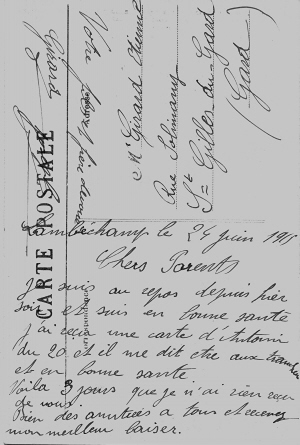 CARTE POSTALE
Mr Girard Etienne
Rue Solimany
St Gilles du Gard
(Gard)
Votre
Girard
le 24 juin 1915
Chers Parents
Je suis au repos depuis hier
soir et suis en bonne santé
j'ai reçu une carte d'Antonin
du 20 et il me dit etre aux tranchées
et en bonne sante
Voila 3 jours que je n'ai rien reçu
de vous.
Bien des amitiés a tous et recevez
mon meilleur baiser.